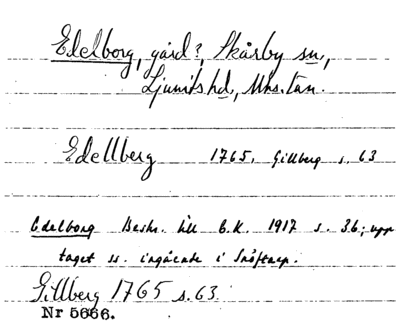 Edelborg, gård?, Skårby sn,
Ljunits hd, Mhs. län.
Edellberg 1765, Gillberg s. 63
Edelborg Beskr. till E.K. 1917 s. 36; upp-
taget ss. ingående i Snöftarp.
Gillberg 1765 s. 63.
Nr 5666.